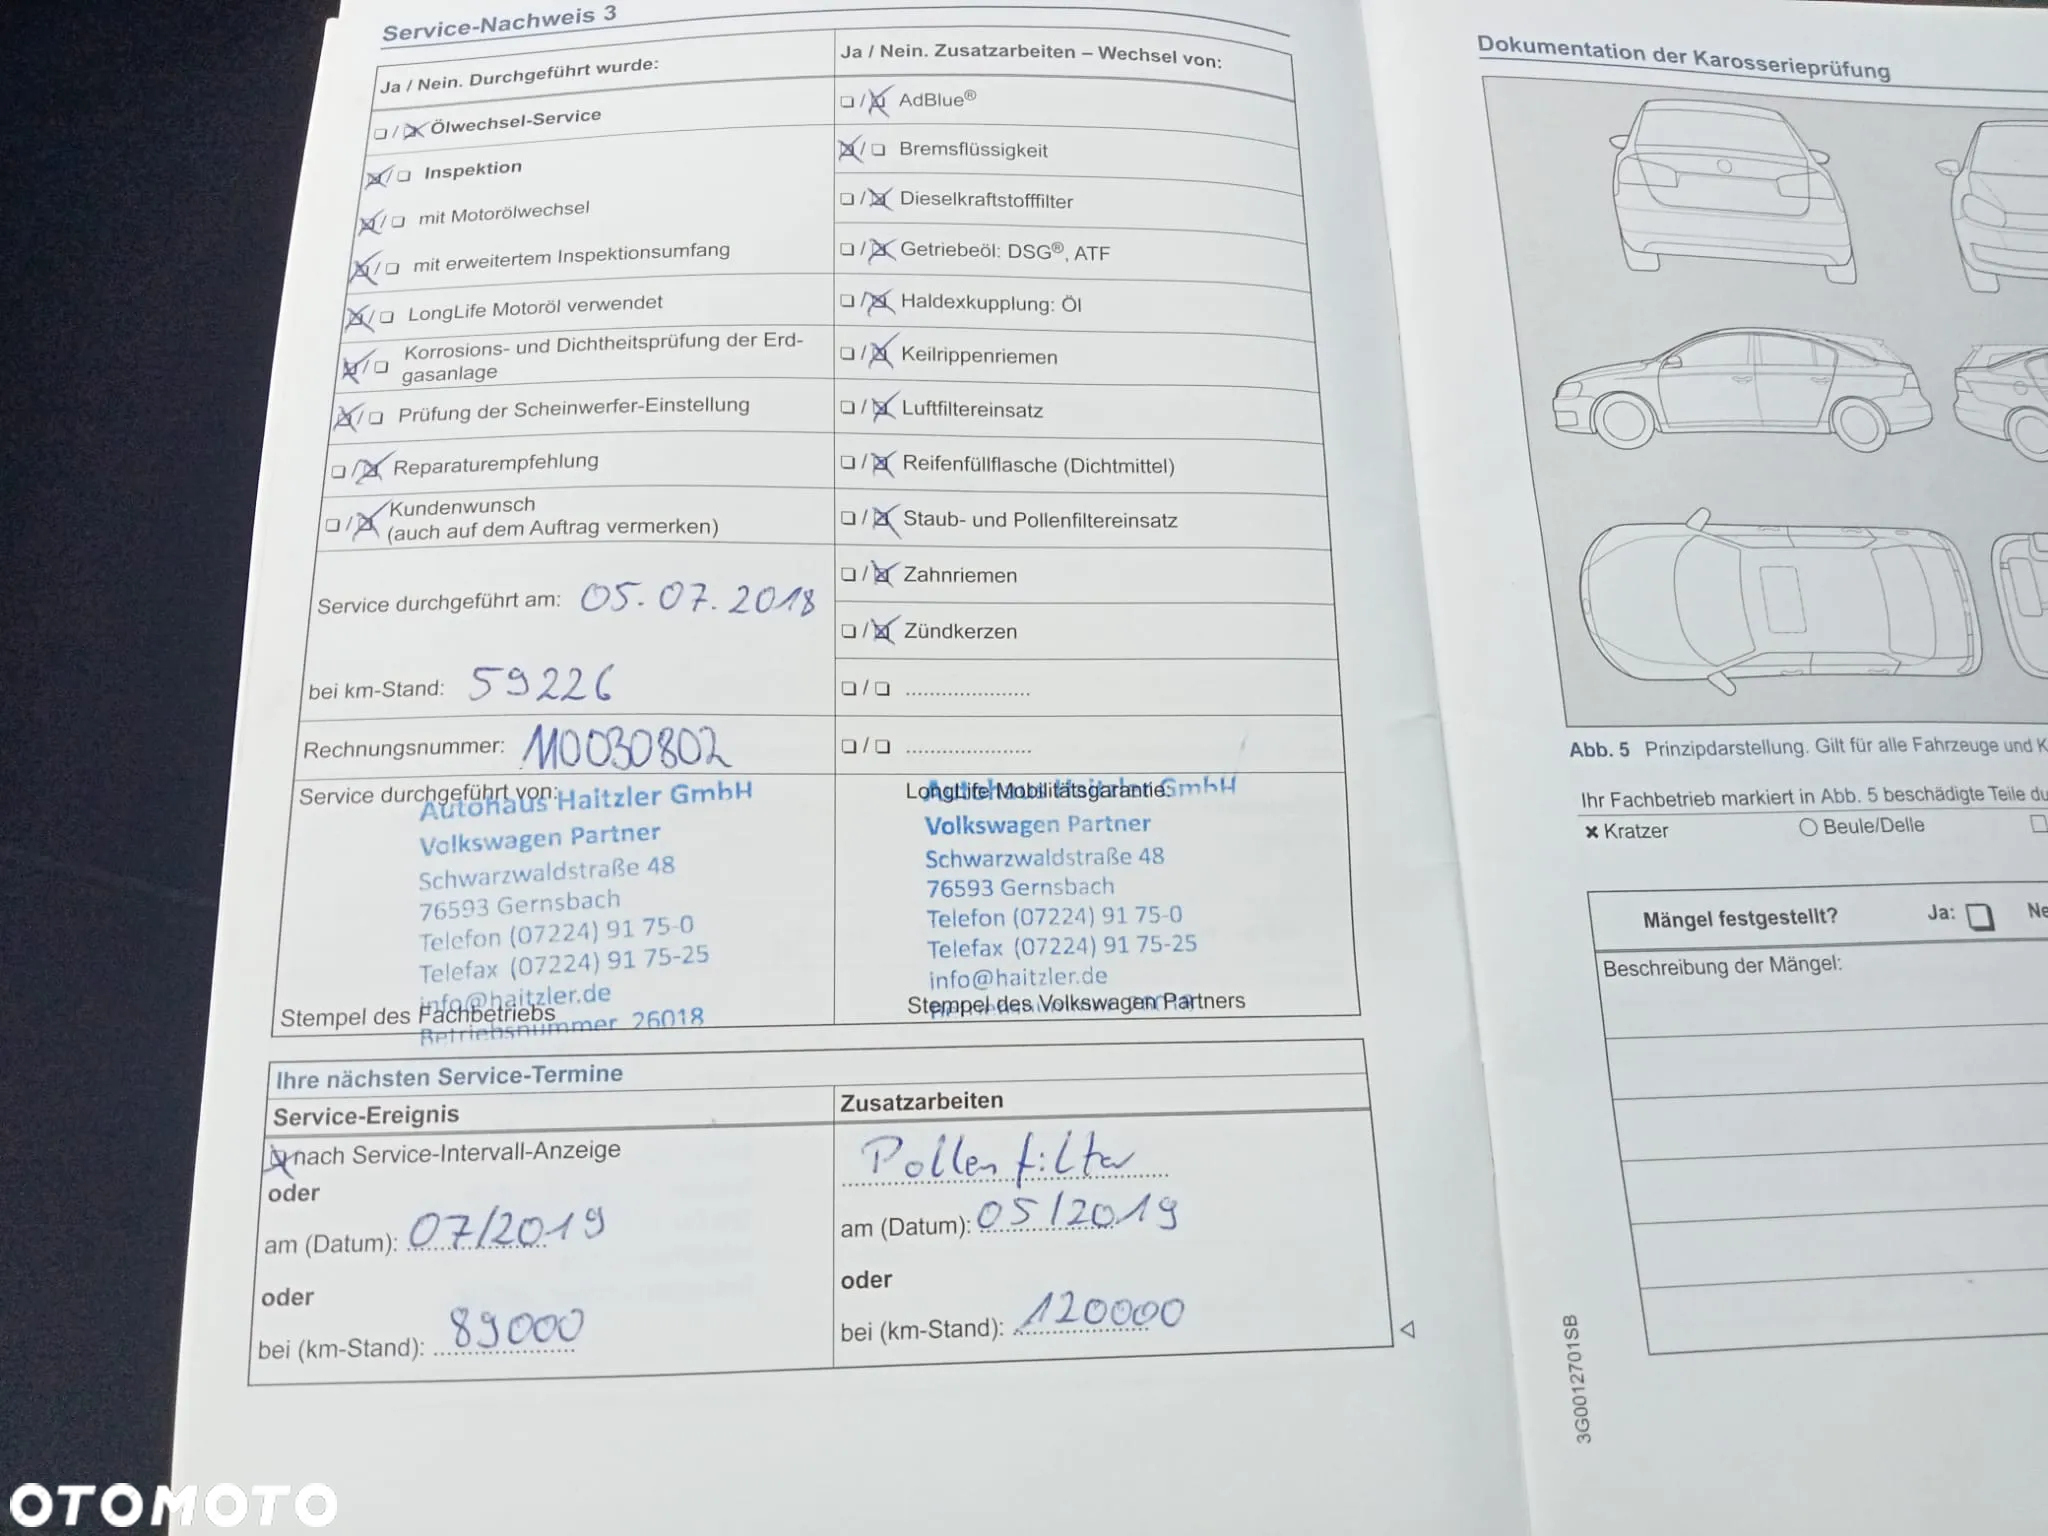 Service-Nachweis 3
Ja / Nein. Durchgeführt wurde:
Ölwechsel-Service
Inspektion
mit Motorölwechsel
mit erweitertem Inspektionsumfang
LongLife Motoröl verwendet
Korrosions- und Dichtheitsprüfung der Erd-
gasanlage
Prüfung der Scheinwerfer-Einstellung
Reparaturempfehlung
Kundenwunsch
(auch auf dem Auftrag vermerken)
Service durchgeführt am: 05.07.2018
bei km-Stand: 59226
Rechnungsnummer: 110030802
Service durchgeführt von:
Autohaus Haitzler GmbH
Volkswagen Partner
Schwarzwaldstraße 48
76593 Gernsbach
Telefon (07224) 91 75-0
Telefax (07224) 91 75-25
info@haitzler.de
Stempel des Fachbetriebs
Betriebsnummer 26018
Ja / Nein. Zusatzarbeiten – Wechsel von:
AdBlue®
Bremsflüssigkeit
Dieselkraftstofffilter
Getriebeöl: DSG®, ATF
Haldexkupplung: Öl
Keilrippenriemen
Luftfiltereinsatz
Reifenfüllflasche (Dichtmittel)
Staub- und Pollenfiltereinsatz
Zahnriemen
Zündkerzen
LongLife Mobilitätsgarantie:
Autohaus Haitzler GmbH
Volkswagen Partner
Schwarzwaldstraße 48
76593 Gernsbach
Telefon (07224) 91 75-0
Telefax (07224) 91 75-25
info@haitzler.de
Stempel des Volkswagen Partners
Ihre nächsten Service-Termine
Service-Ereignis
nach Service-Intervall-Anzeige
oder
am (Datum): 07/2019
oder
bei (km-Stand): 89000
Zusatzarbeiten
Pollenfilter
am (Datum): 05/2019
oder
bei (km-Stand): 120000
Dokumentation der Karosserieprüfung
Abb. 5 Prinzipdarstellung. Gilt für alle Fahrzeuge und K
Ihr Fachbetrieb markiert in Abb. 5 beschädigte Teile du
Kratzer
Beule/Delle
Mängel festgestellt? Ja: Ne
Beschreibung der Mängel:
3G0012701SB
OTOMOTO